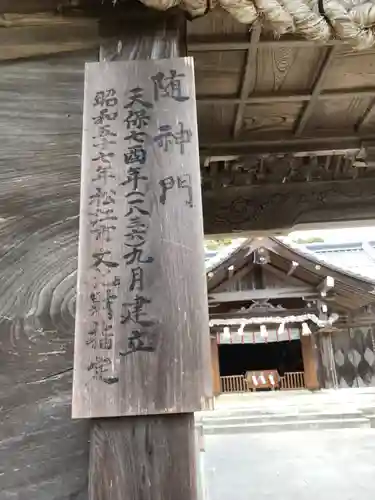 随神門
天保七酉年(一八三六)九月建立
昭和五十七年松江市文化財指定